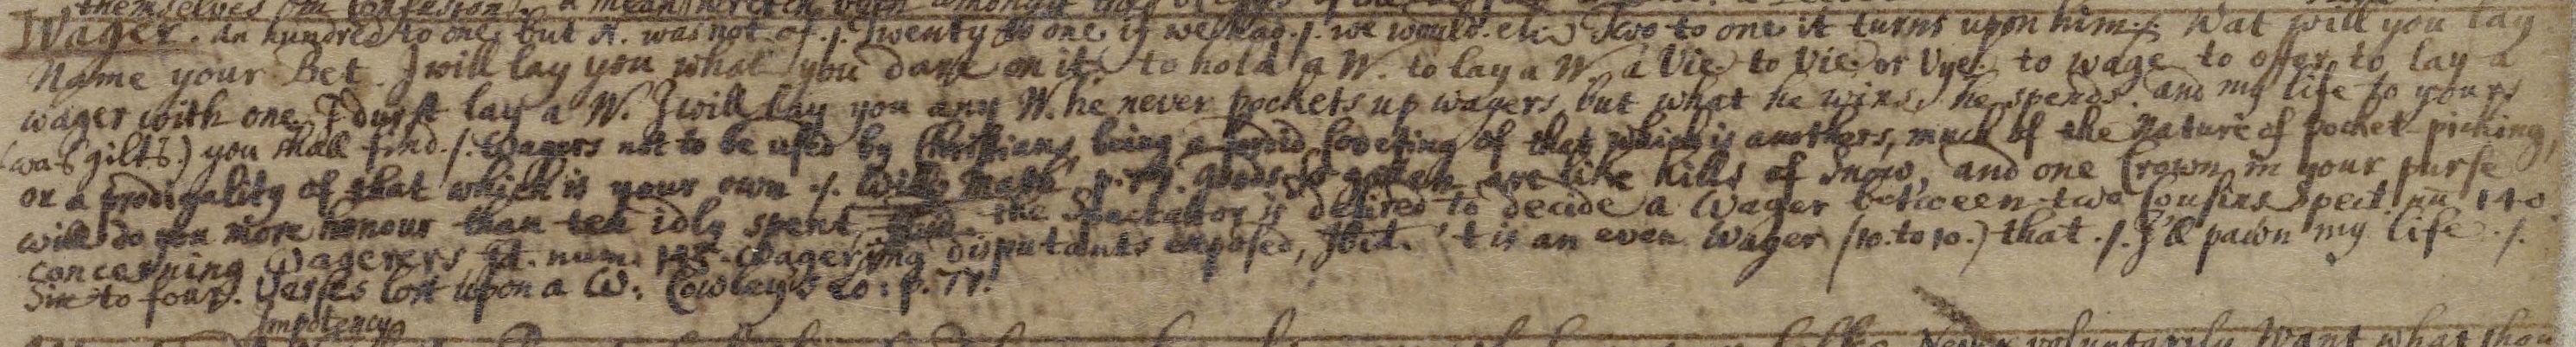 themselves in confusion. a mean
Wager. An hundred to one, but A. was not of ./. Twenty to one if we had ./. we would. eli. Two to one it turns upon him ./. Wat will you lay
Name your Bet. I will lay you what you dare on it. to hold a W. to lay a W. a Vie. to Vie. or Vye. to wage to offer to lay a
wager with one. I durst lay a W. I will lay you any W. he never pockets up wagers, but what he wins, he spends. and my life to yours
you shall find ./. Wagers not to be used by Christians, being a sordid Coveting of that which is anothers, much of the Nature of pocket-picking,
or a prodigality of that which is your own ./. goods so gotten are like hills of Snow, and one Crown in your purse
will do you more honour than ten idly spent, the Spectator is desired to decide a Wager between two Cousins Spect. nu 140
concerning Wagerers, Id. num. 145. Wagering disputants exposed, Ibid. 't is an even Wager (10. to 10.) that ./. I'll pawn my life ./.
Six to four. Verses lost upon a W. Cowley's
Impotency
Never voluntarily Want what thou